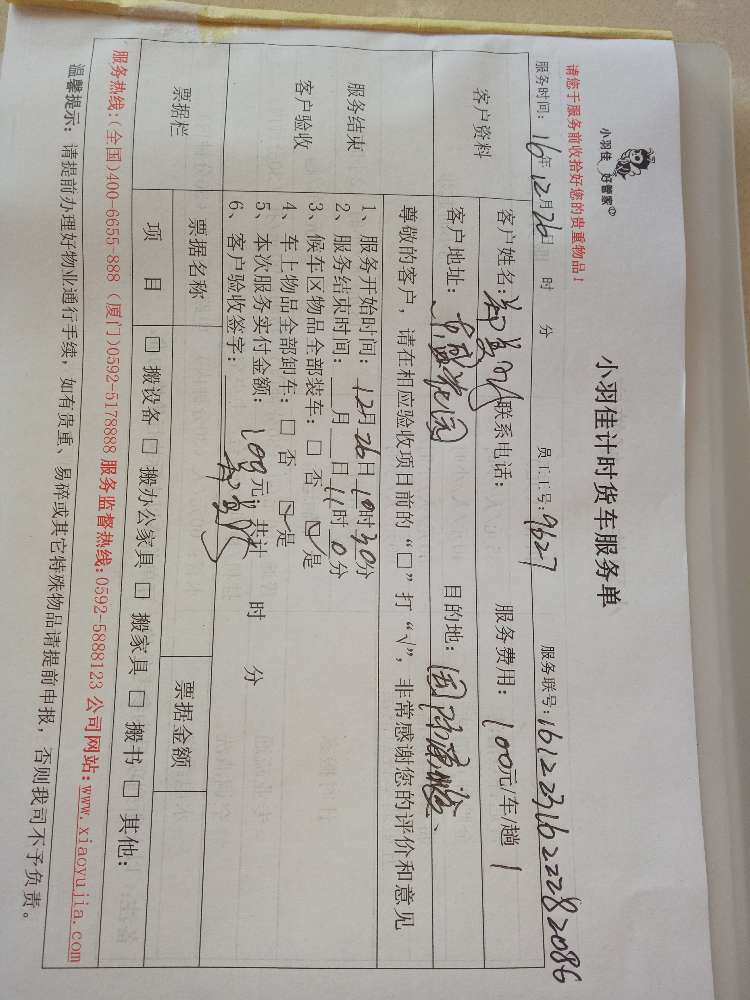 小羽佳 好管家
小羽佳计时货车服务单
请您于服务前收拾好您的贵重物品！
服务时间：16年12月26日 时 分 员工工号：9627 服务联号：1612231622282086
客户资料 客户姓名： 联系电话： 服务费用：100元/车/趟 1
客户地址： 花园 目的地：
尊敬的客户，请在相应验收项目前的“□”打“√”，非常感谢您的评价和意见
服务结束
客户验收
1、服务开始时间：12月26日10时30分
2、服务结束时间：__月__日11时0分
3、候车区物品全部装车：□ 否 ☑ 是
4、车上物品全部卸车：□ 否 ☑ 是
5、本次服务实付金额：100元；共计 时 分
6、客户验收签字：
票据栏 票据名称 票据金额
项 目 □ 搬设备 □ 搬办公家具 □ 搬家具 □ 搬书 □ 其他：
服务热线：(全国)400-6655-888 (厦门)0592-5178888 服务监督热线：0592-5888123 公司网站：www.xiaoyujia.com
温馨提示：请提前办理好物业通行手续，如有贵重、易碎或其它特殊物品请提前申报，否则我司不予负责。